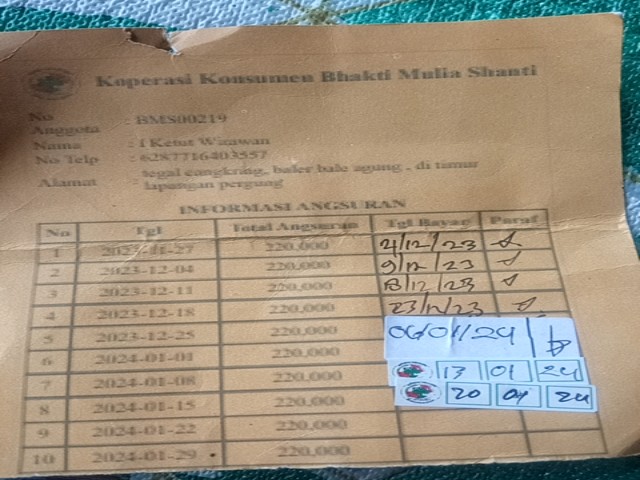 Koperasi Konsumen Bhakti Mulia Shanti
No Anggota : BMS00219
Nama : I Ketut Wirawan
No Telp : 6287716403557
Alamat : tegal cangkring, baler bale agung , di timur
lapangan pergung
INFORMASI ANGSURAN
No Tgl Total Angsuran Tgl Bayar Paraf
1 2023-11-27 220,000 4/12/23
2 2023-12-04 220,000 9/12/23
3 2023-12-11 220,000 18/12/23
4 2023-12-18 220,000 23/12/23
5 2023-12-25 220,000 06/01/24
6 2024-01-01 220,000
7 2024-01-08 220,000 13 01 24
8 2024-01-15 220,000 20 01 24
9 2024-01-22 220,000
10 2024-01-29 220,000